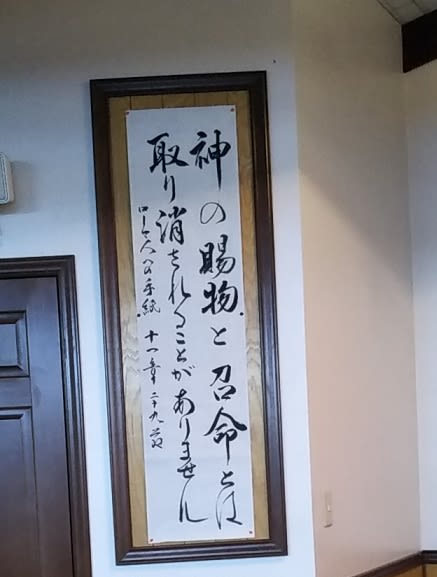 神の賜物と召命とは
取り消されることがありません
ローマ人への手紙 十一章 二十九節